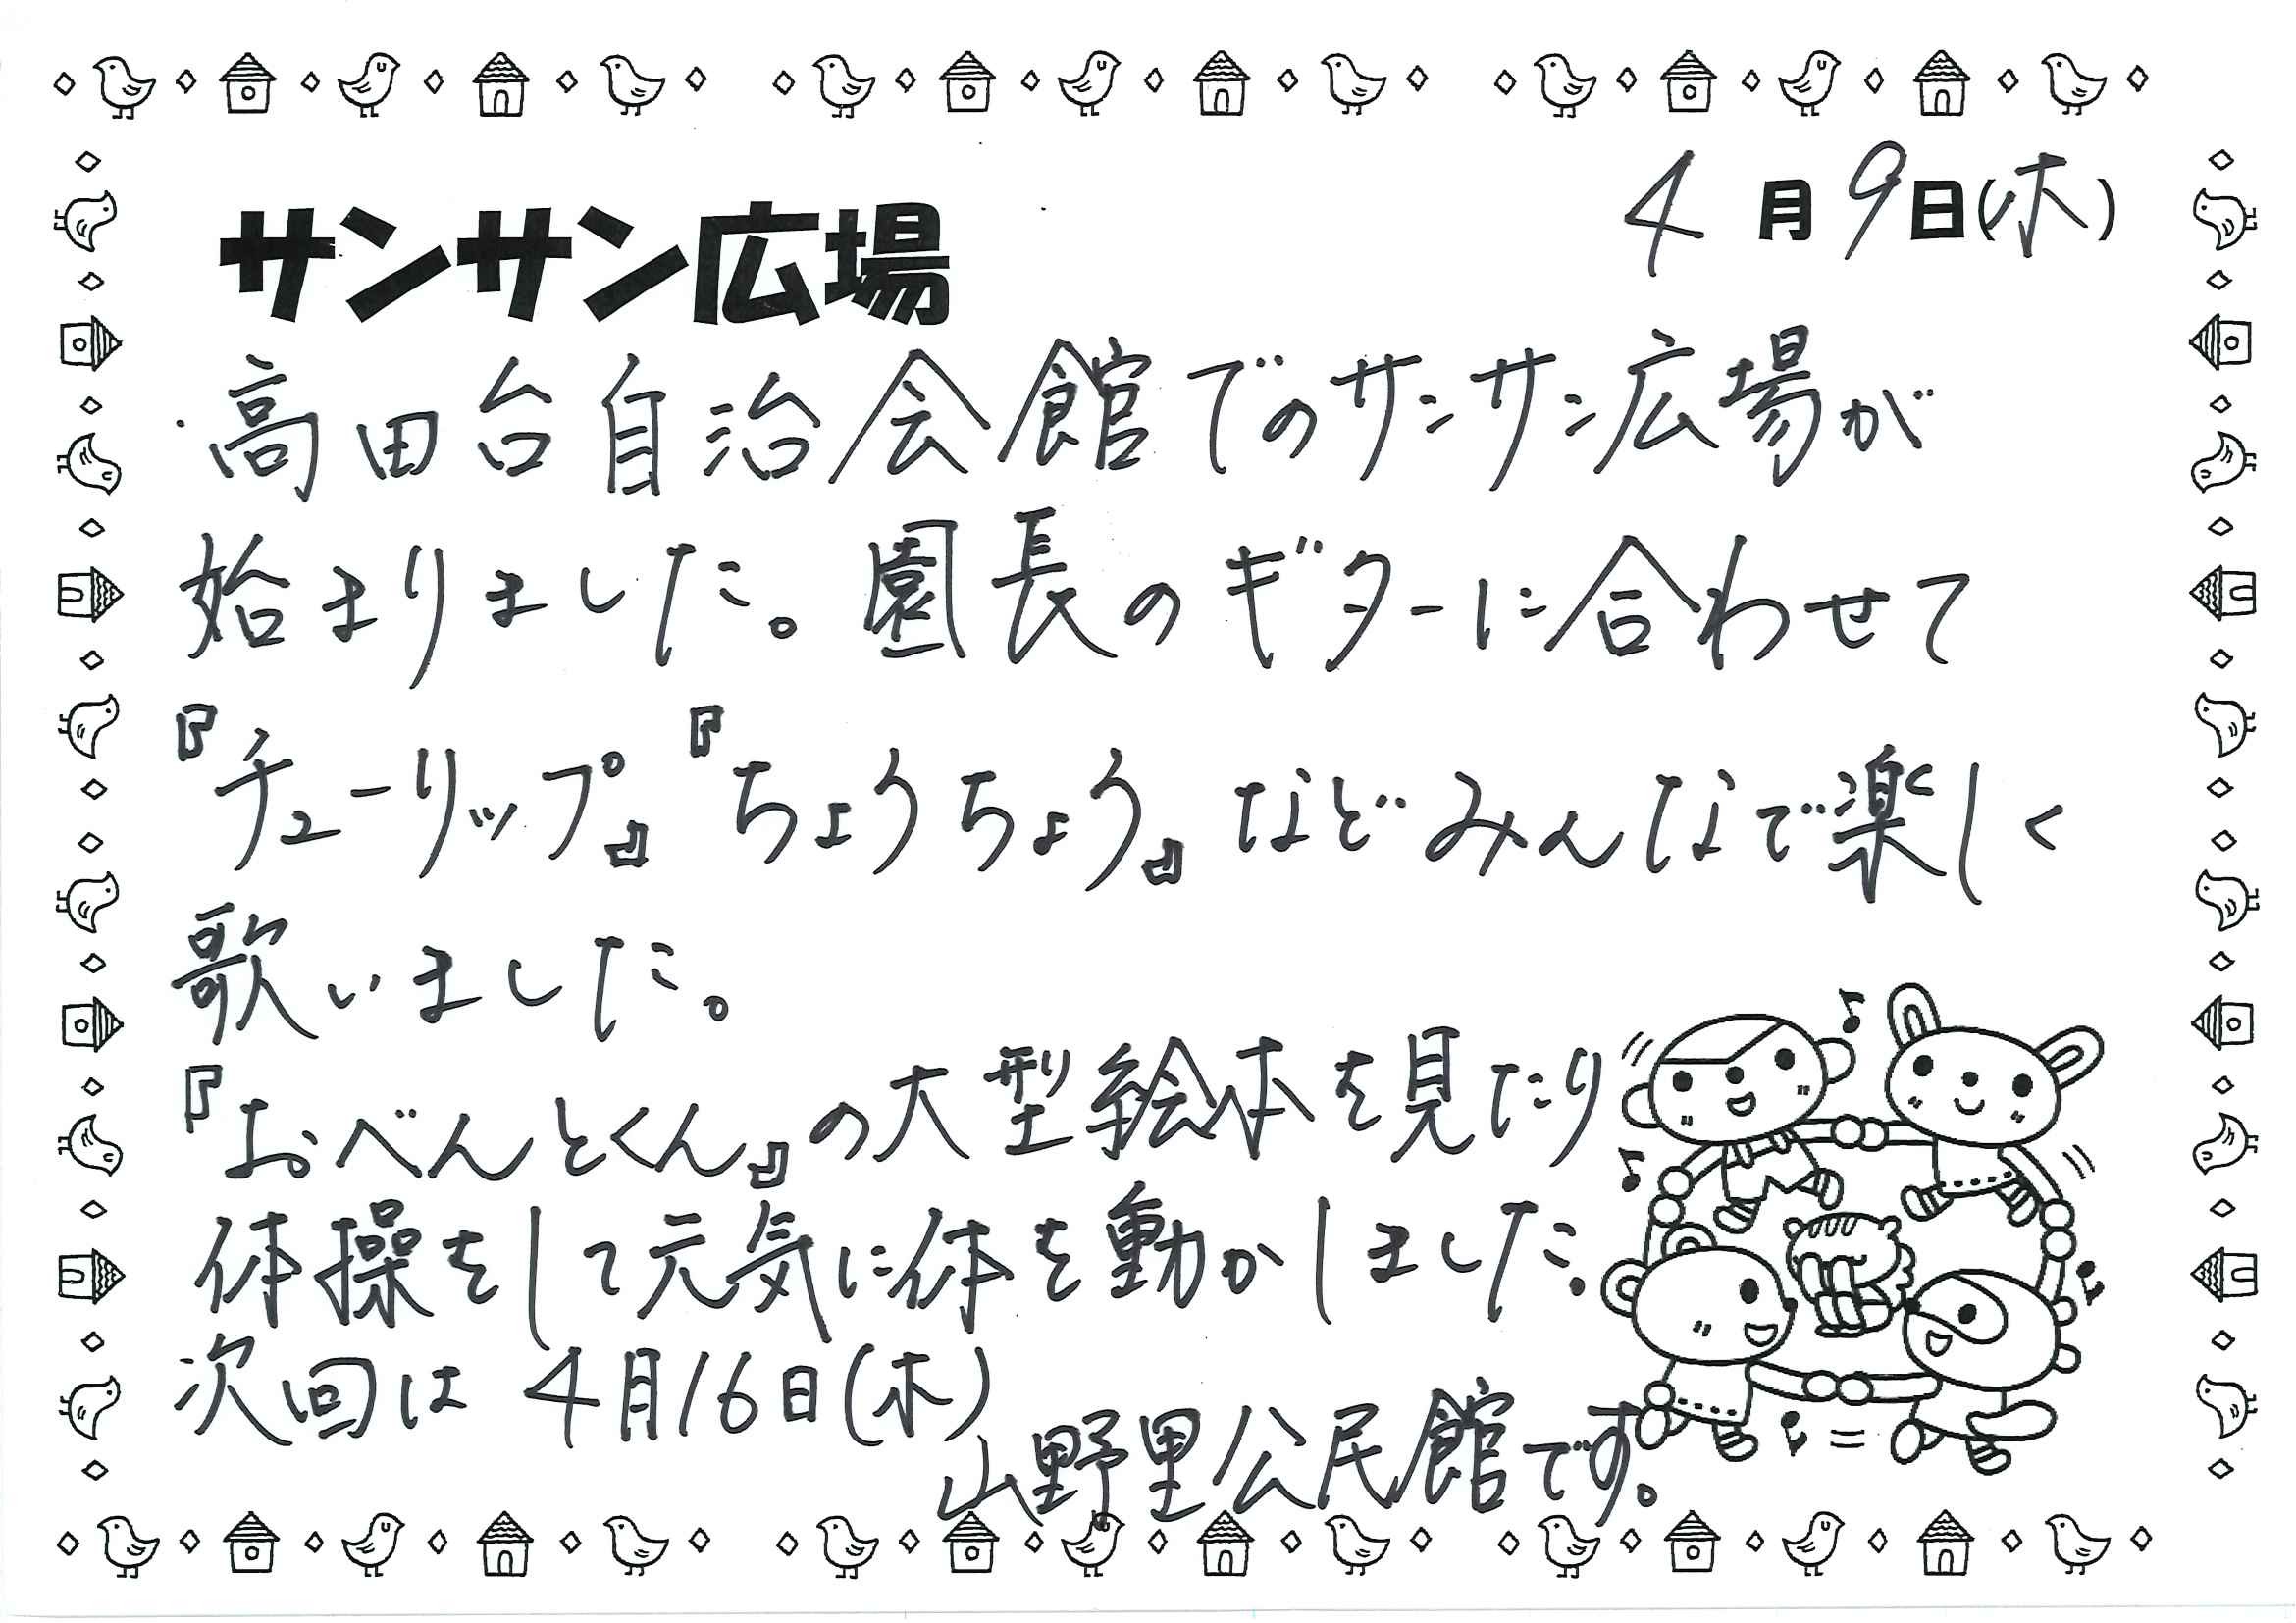 4月9日(木)
サンサン広場
高田台自治会館でのサンサン広場が
始まりました。園長のギターに合わせて
『チューリップ』『ちょうちょう』などみんなで楽しく
歌いました。
『おべんとくん』の大型絵本を見たり
体操をして元気に体を動かしました。
次回は 4月16日(木)
山野里公民館です。